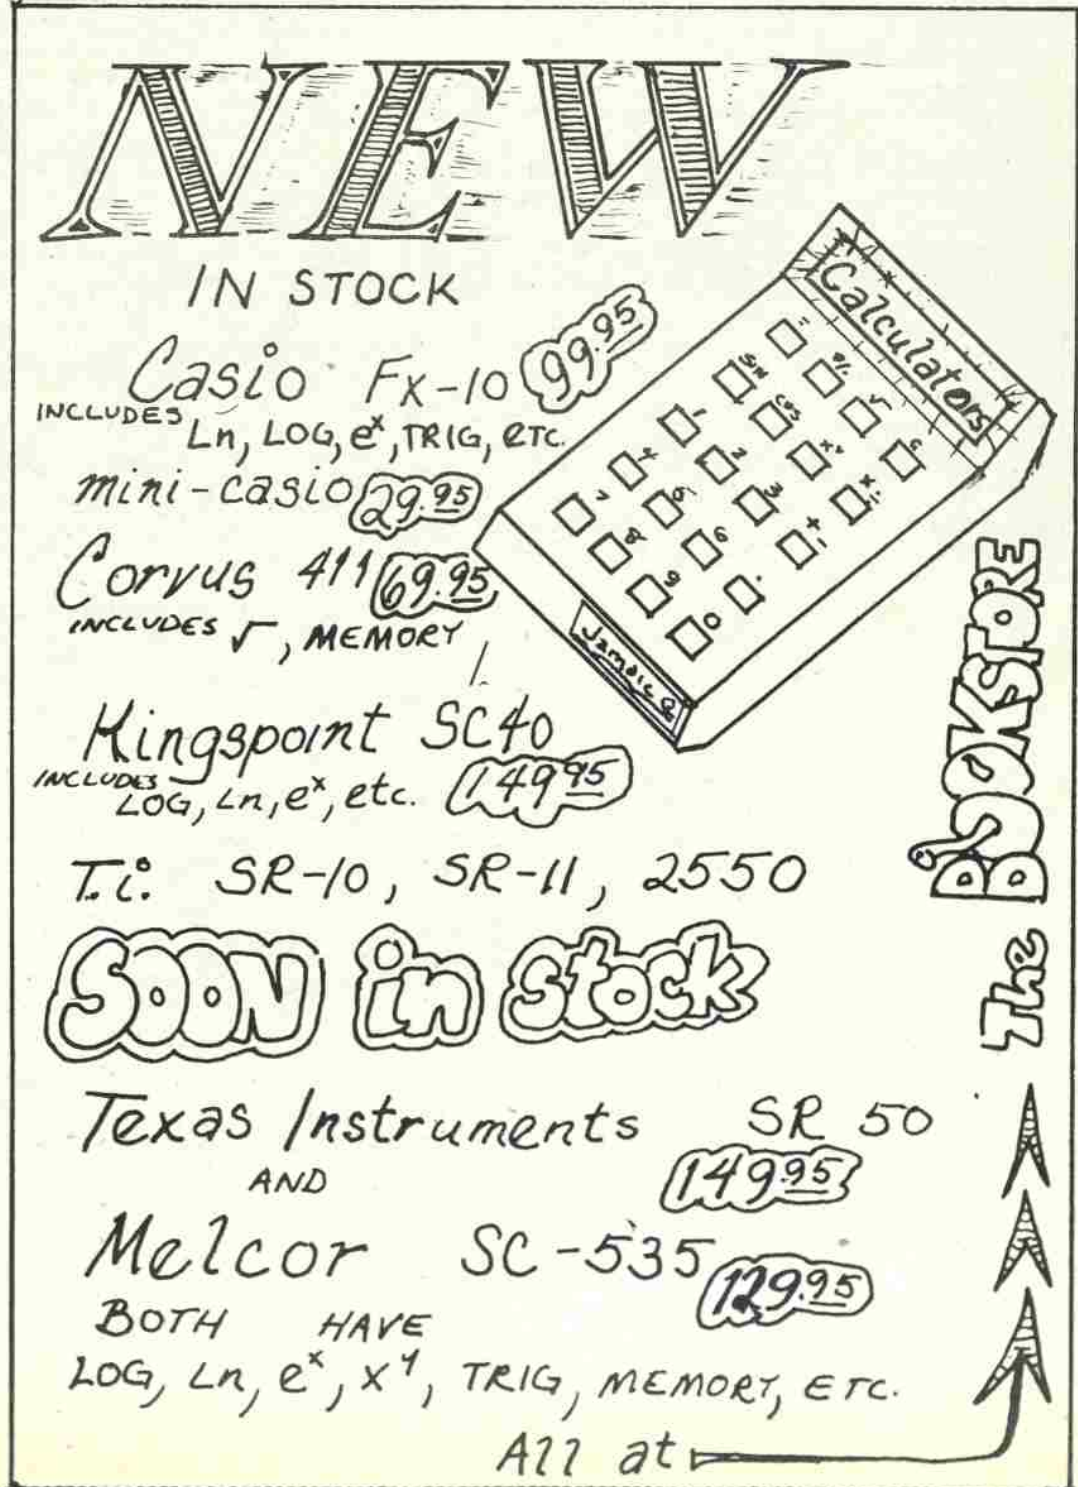 NEW
IN STOCK
Casio Fx-10 99.95
INCLUDES
Ln, LOG, e^x, TRIG, ETC.
mini-casio 29.95
Corvus 411 69.95
INCLUDES √, MEMORY
Kingspoint SC40
INCLUDES
LOG, Ln, e^x, etc. 149.95
T.i. SR-10, SR-11, 2550
SOON in Stock
Texas Instruments SR 50
149.95
AND
Melcor SC-535
129.95
BOTH HAVE
LOG, Ln, e^x, x^y, TRIG, MEMORY, ETC.
All at
The BOOKSTORE
Calculators
=
%
√
SIN
COS
1
2
3
4
6
7
8
9
0
.